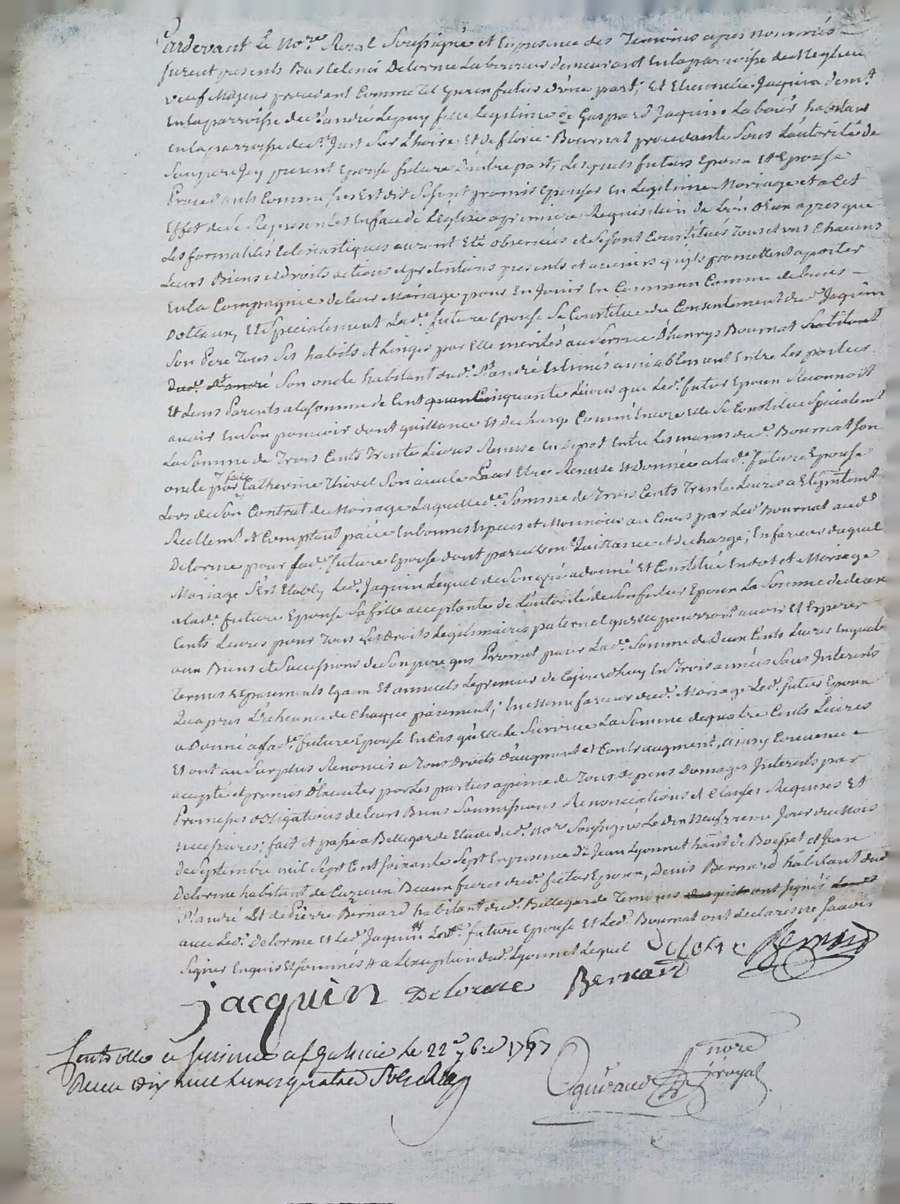 Pardevant Le No.re Royal Soussigné et En presence des Temoins apres nommés
furent presents Delorme Laboureur demeurant En la parroisse de
veuf Majeur procedant Comme tel Epoux futur d'une part, Et Jaquin dem.t
En la parroisse de S.t André Lepuy fille Legitime de Gaspard Jaquin Labour habitant
en la parroisse de S.t Just Et de Bournat procedante Sous L'autorité de
Son pere Icy present Epouse future d'autre part, Lesquels futurs Epoux Et Epouse
Procedants Comme Est dit Se sont promis Epouser En Legitime Mariage et a Cet
Effet de Se Representer En face de L'Eglise a premiere Requisition de L'un d'Eux apres que
Les formalités auront Eté observées et Se sont Constitués Tous et uns Chacuns
Leurs Biens et Droits actions et pretentions presents et avenirs qu'ils promettent aporter
En la Compagnie de leur Mariage pour En Jouir En Commun Comme de biens
Dottaux, Et Specialement La d.e future Epouse Se Constitue du Consentement du d.t Jaquin
Son Pere Tous Ses habits et Linges par Elle merités au Service d'henrys Bournat
Son oncle habitant du d.t S.t andré Estimés amiablement Entre Les parties
Et Leurs Parents a la Somme de Cent Cinquante Livres que Le d.t futur Epoux Reconnoit
avoir En Son pouvoir dont quittance Et decharge Comm'Encore Elle Se Constitue Specialement
La Somme de Trois Cents Trente Livres Remise En depot Entre Les mains du d.t Bournat Son
oncle par Catherine Son ayeule Pour Etre Remise Et Donnée a la d.e future Epouse
Lors de Son Contrat de Mariage Laquelle d.e Somme de Trois Cents Trente Livres a Eté
Reellem.t Et Comptant païée En bonnes Especes et Monnoie au Cours par Le d.t Bournat au d.t
Delorme pour sa d.e future Epouse dont pareillem.t quittance et decharge; En faveur duquel
Mariage S'est Etably Le d.t Jaquin Lequel de Son gré a donné Et Constitué En dot et Mariage
a la d.e future Epouse Sa fille acceptante de L'autorité de Son futur Epoux La Somme de deux
Cents Livres pour Tous Les Droits Legitimaires paternels qu'elle pourroit avoir Et Esperer
aux Biens et Successions de Son pere qui Promet payer La d.e Somme de Deux Cents Livres En quatre
Termes Et païements Egaux Et annuels Le premier de Cejourd'huy En Trois années Sans Interets
Qu'apres L'écheance de Chaque païement; En Meme faveur du d.t Mariage Le d.t futur Epoux
a Donné a sa d.e future Epouse En Cas qu'Elle le Survive La Somme de quatre Cents Livres
Et ont au Surplus Renoncés a Tous Droits d'augment et Contraugment, ainsy Convenu
accepté et promis Executer par Les parties a peine de Tous Depens Domages Interests par
Promesses obligations de Leurs Biens Soumissions Renonciations et Clauses Requises Et
necessaires; fait et passé a Bellegarde Etude du d.t No.re Soussigné Le dix Neufvieme Jour du Mois
de Septembre mil Sept Cent Soixante Sept En presence de Jean Lyonnet hab.t de Boisset et Jean
Delorme habitant de Cuzieu Beaux freres du d.t futur Epoux, Denis Bernard habitant du d.t
S.t andré Et de Pierre Bernard habitant du d.t Bellegarde Temoins qui ont Signés
avec Le d.t Delorme et Le d.t Jaquin La d.e future Epouse Et Le d.t Bournat ont declarés ne Savoir
Signer Enquis Et Sommés a L'exception du d.t Lyonnet Lequel
Delorme Bernard
jacquin Delorme Bernard
Controllé a le 22.e 7bre 1767
Reçu dix neuf Livres quatre Sols
no.re royal